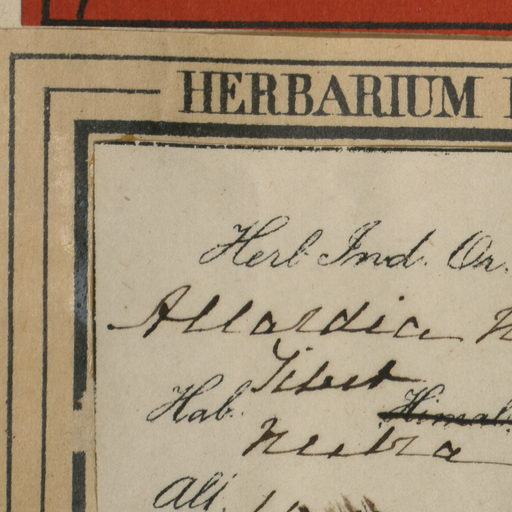 HERBARIUM
Herb. Ind. Or.
Allardia
Tibet
Hab. Himal
Nubra
Alt.